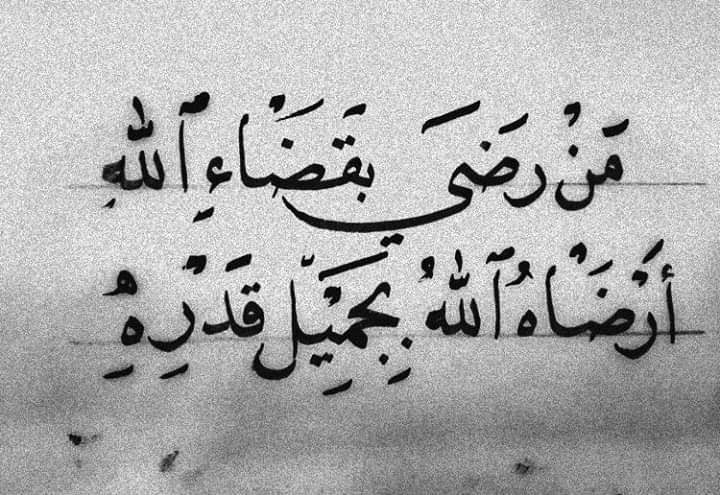 مَنْ رَضَى بِقَضَاءِ ٱللهِ
أَرْضَاهُ ٱللهُ بِجَمِيْلِ قَدْرِهِ